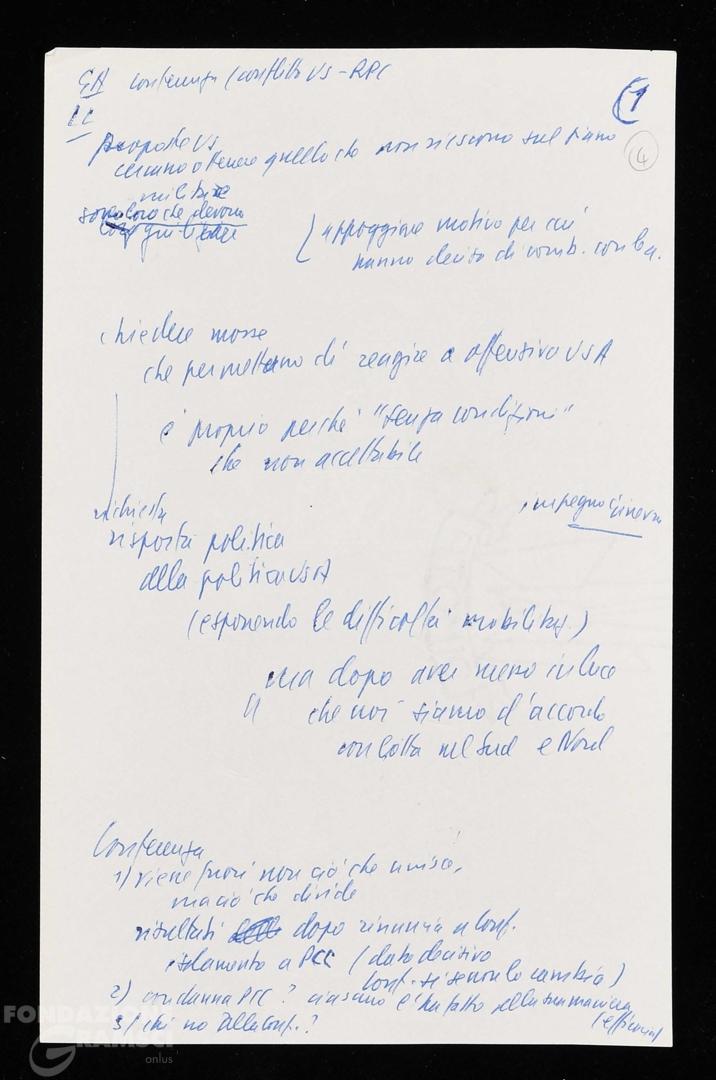 conferenza (conflitto US-RPC
1
4
Proposte US
cercano ottenere quello che non riescono sul piano
militare
sono loro che devono
appoggiare motivo per cui
hanno deciso di comb. con la.
chiedere mosse
che permettano di reagire a offensiva USA
è proprio perché "senza condizioni"
che non accettabile
impegno Ginevra
richiesta
risposta politica
alla politica USA
(esponendo le difficoltà mobilit.)
ma dopo aver messo in luce
che noi siamo d'accordo
con lotta nel Sud e Nord
Conferenza
1) viene fuori non ciò che unisce,
ma ciò che divide
risultati dopo rinuncia a Conf.
isolamento a PCC (dato decisivo
Conf. sì se non lo cambia)
2) condanna PCC? ciascuno l'ha fatto alla sua maniera
3) chi no alla Conf.?
FONDAZIONE
GRAMSCI
onlus